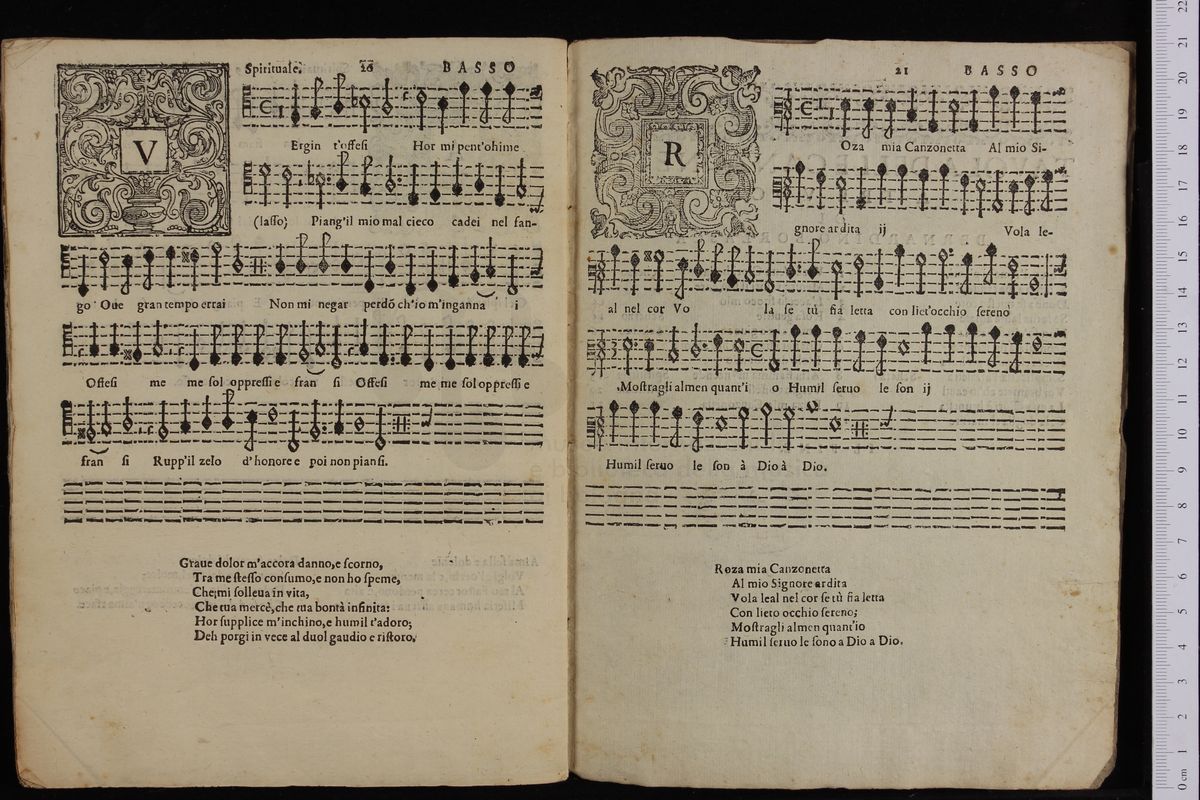 Spirituale.
BASSO
V
Ergin t'offesi Hor mi pent'ohime
(lasso) Piang'il mio mal cieco cadei nel fan-
go Oue gran tempo errai Non mi negar perdō ch'io m'inganna i
Offesi me me sol oppressi e fran si Offesi me me sol oppressi e
fran si Rupp'il zelo d'honore e poi non piansi.
Graue dolor m'accora danno,e scorno,
Tra me stesso consumo,e non ho speme,
Che;mi solleua in vita,
Che tua mercè,che tua bontà infinita:
Hor supplice m'inchino,e humil t'adoro;
Deh porgi in vece al duol gaudio e ristoro.
21 BASSO
R
Oza mia Canzonetta Al mio Si-
gnore ardita ij Vola le-
al nel cor Vo la se tù fia letta con liet'occhio sereno
Mostragli almen quant'i o Humil seruo le son ij
Humil seruo le son à Dio à Dio.
Roza mia Canzonetta
Al mio Signore ardita
Vola leal nel cor se tù fia letta
Con lieto occhio sereno;
Mostragli almen quant'io
Humil seruo le sono a Dio a Dio.
0 cm 1 2 3 4 5 6 7 8 9 10 11 12 13 14 15 16 17 18 19 20 21 22